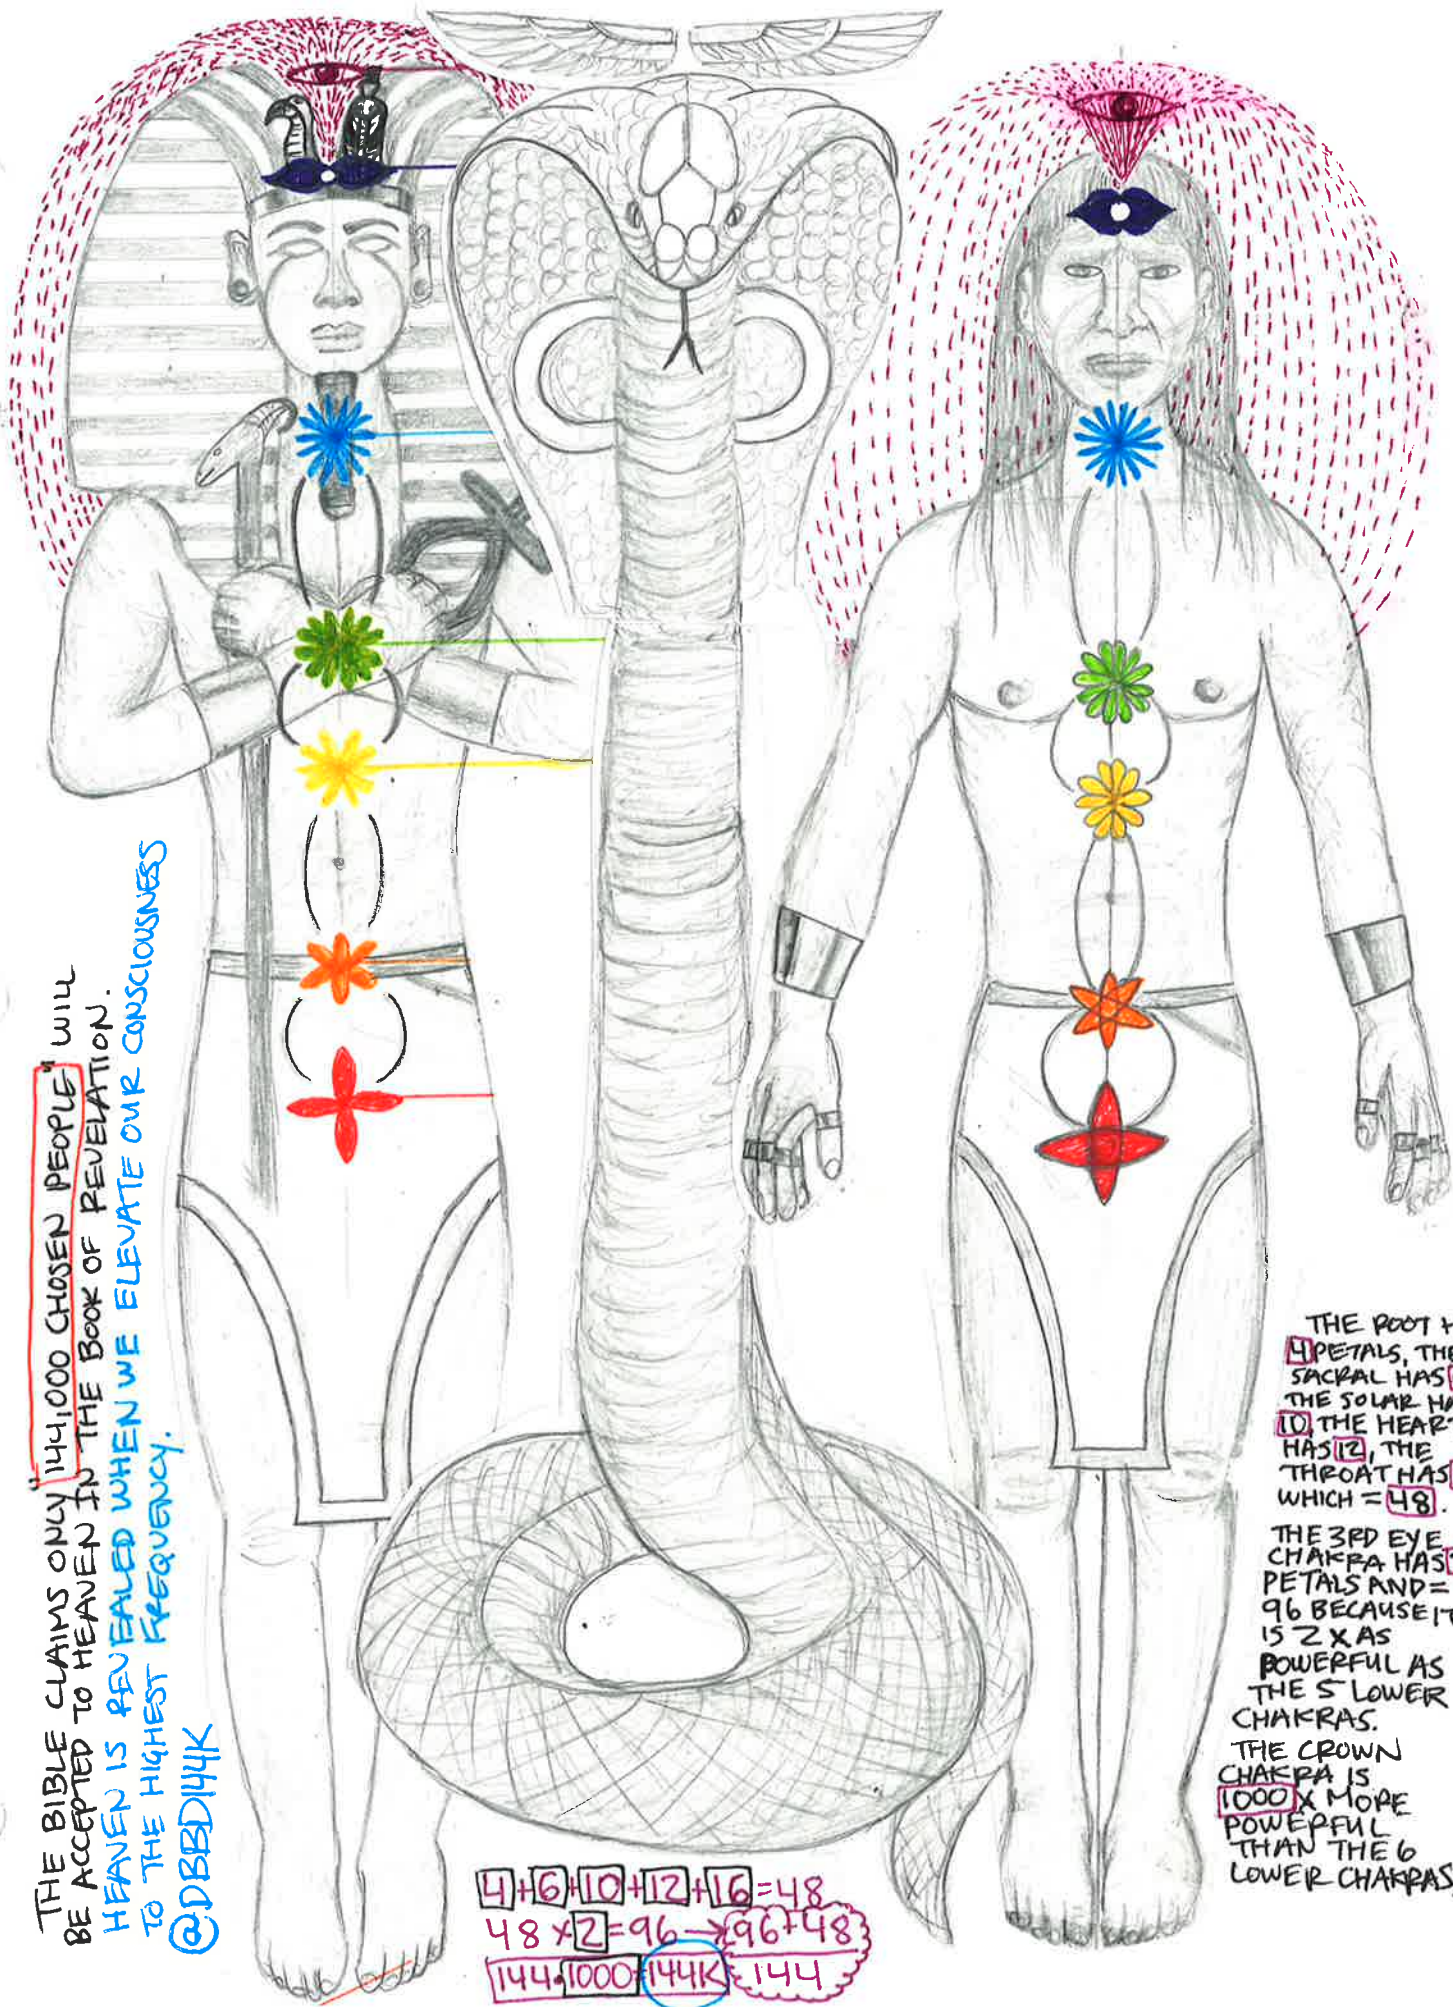 THE BIBLE CLAIMS ONLY "144,000 CHOSEN PEOPLE" WILL
BE ACCEPTED TO HEAVEN IN THE BOOK OF REVELATION.
HEAVEN IS REVEALED WHEN WE ELEVATE OUR CONSCIOUSNESS
TO THE HIGHEST FREQUENCY.
@DBBD144K
4+6+10+12+16=48
48×2=96→96+48
144·1000=144K 144
THE ROOT H
4 PETALS, THE
SACRAL HAS
THE SOLAR HA
10, THE HEART
HAS 12, THE
THROAT HAS
WHICH = 48.
THE 3RD EYE
CHAKRA HAS
PETALS AND =
96 BECAUSE IT
IS 2X AS
POWERFUL AS
THE 5 LOWER
CHAKRAS.
THE CROWN
CHAKRA IS
1000 X MORE
POWERFUL
THAN THE 6
LOWER CHAKRAS